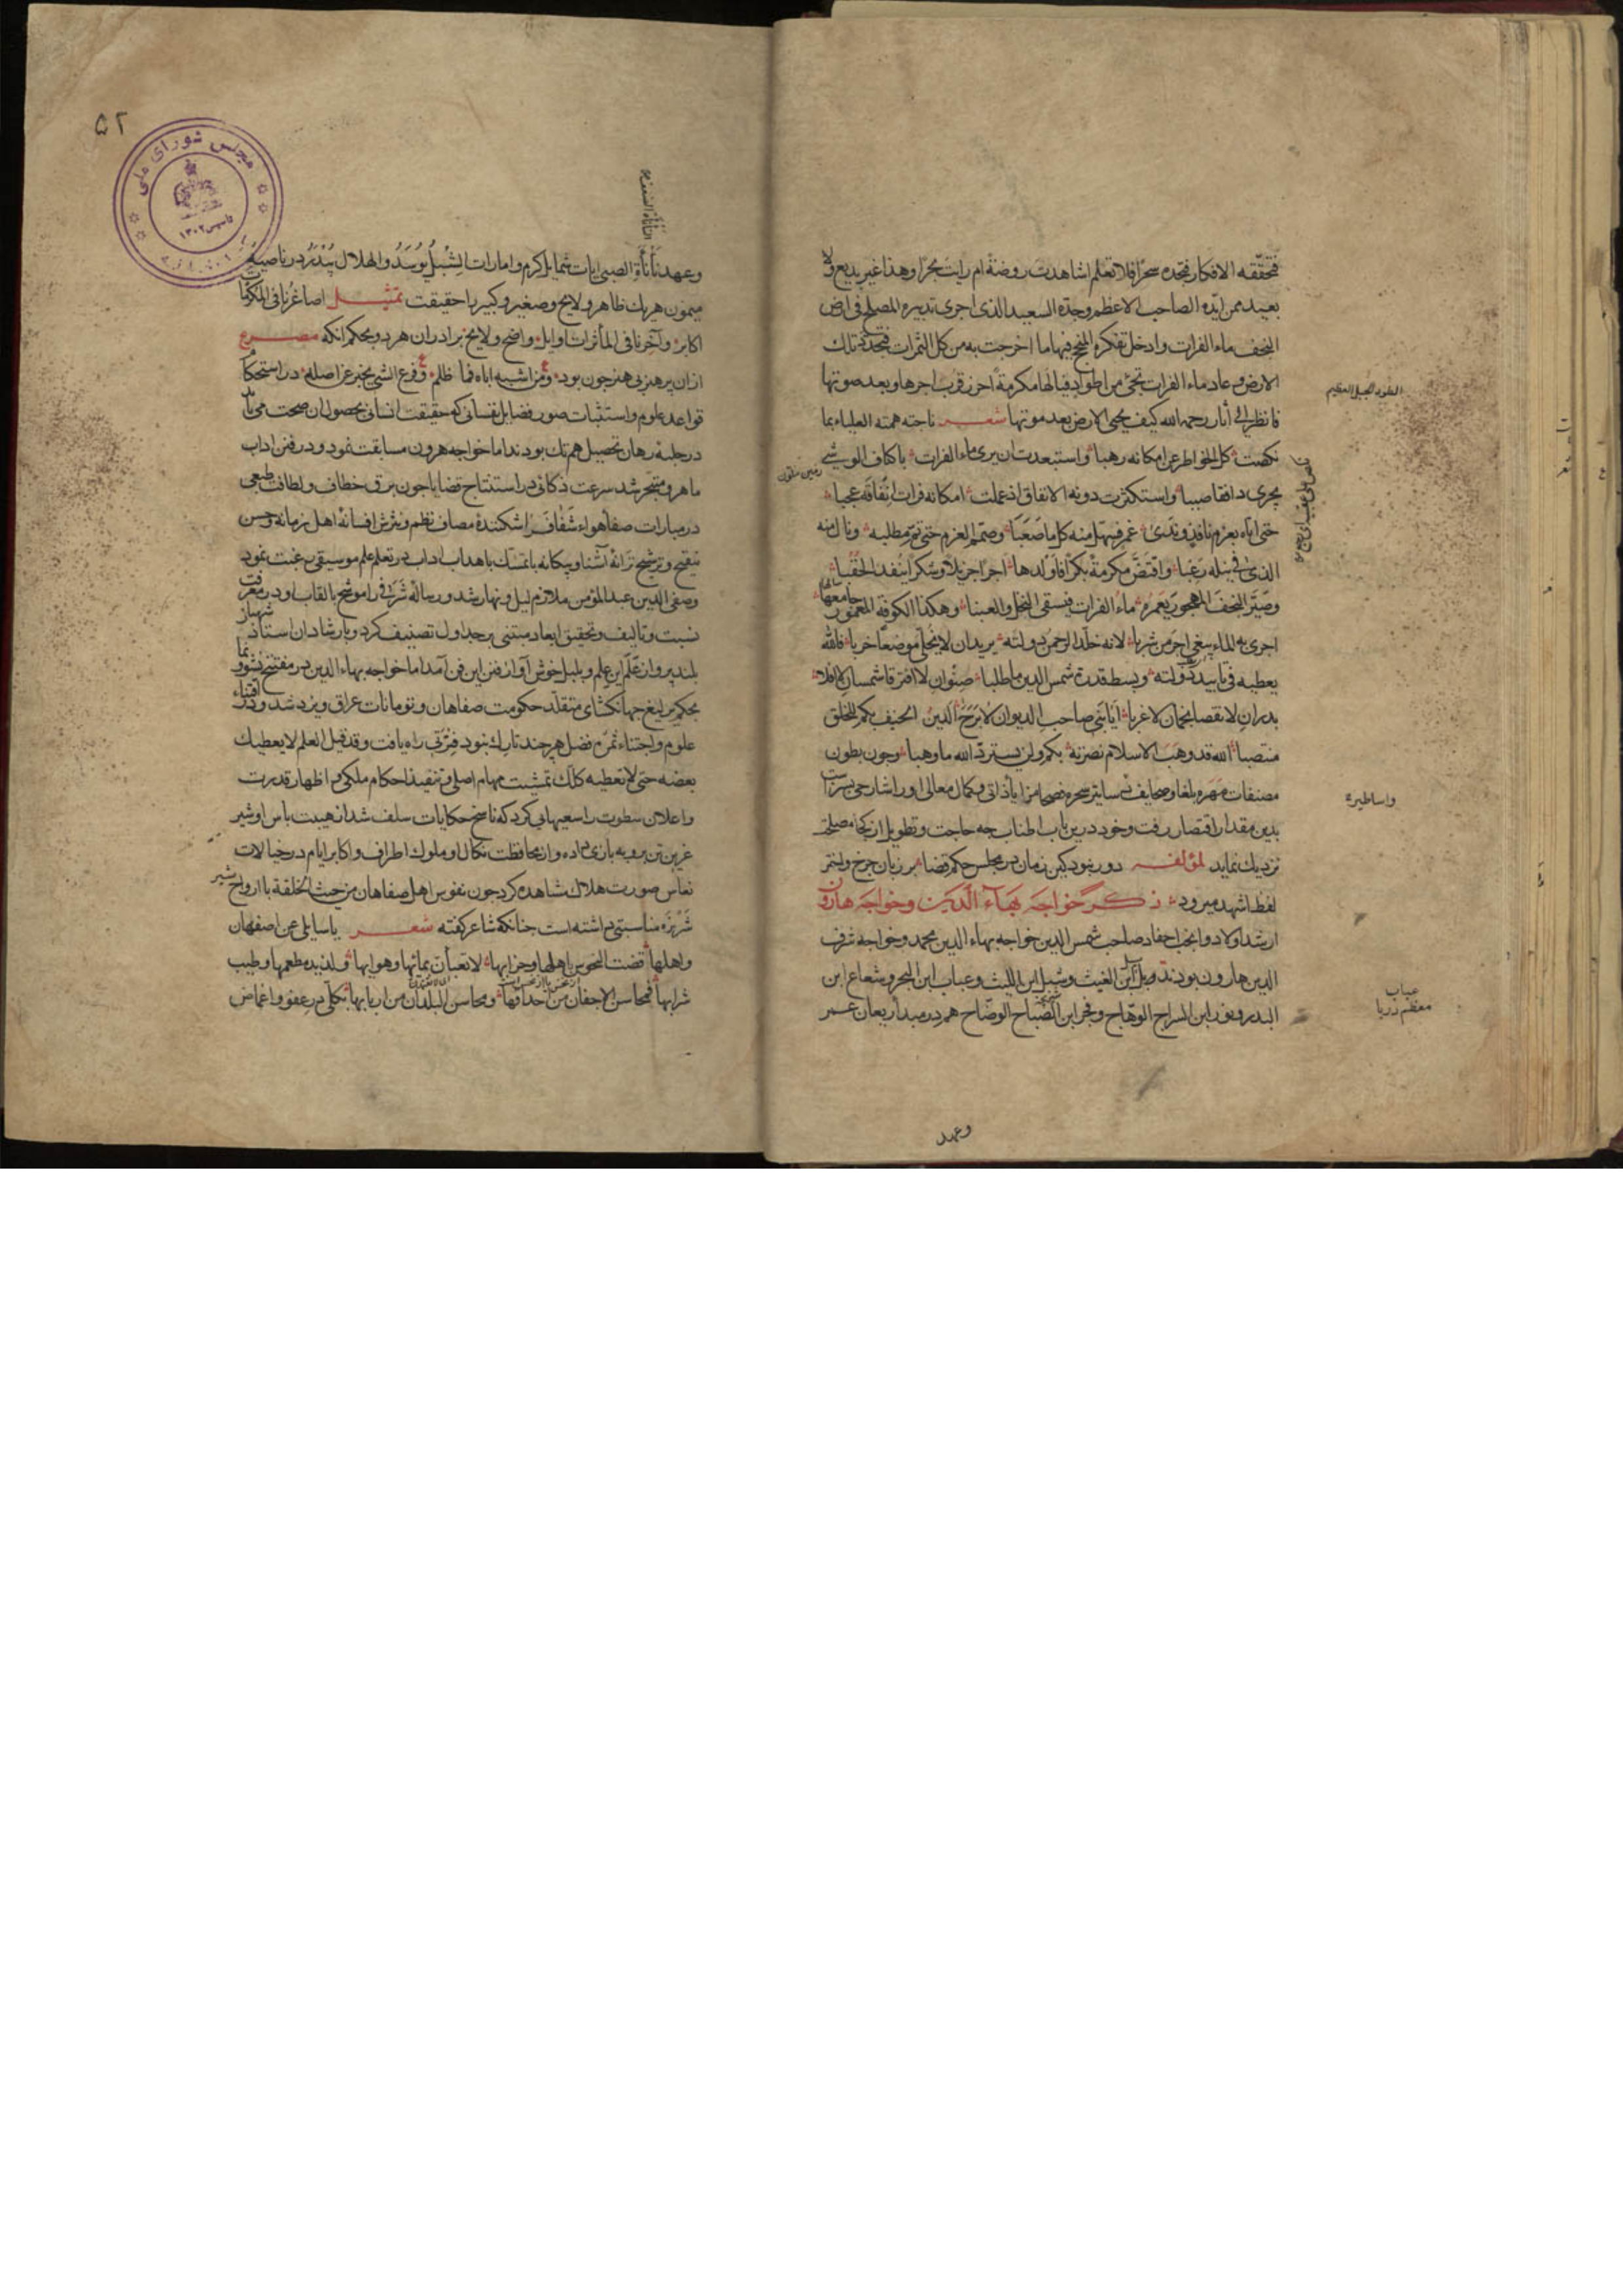 فتحققه الافكار فتجده سحرًا فلا تعلم اشاهدت روضة ام رایت بحرًا وهذا غیر بدیع ولا
بعید ممن ایده الصاحب الاعظم وجدّه السعید الذی اجری تدبیره المصلح فی ارض
النجف ماء الفرات وادخل تفکره المنجح فیها ما اخرجت به من کل الثمرات فتحد ثّ تلک
الارض وعاد ماء الفرات تجئ من اطواد فیالها مکرمة احرز قرب اجرها وبعد صوتها
فانظر الی آثار رحمة الله کیف یحیی الارض بعد موتها شعر ناجته همته العلیاء بما
نکصت کل الخواطر عن امکانه رهبا واستبعدت ان یری ماء الفرات باکناف الوشی
یجری دافقا صببا واستکثرت دونه الانفاق اذ عملت امکانه فرات انفاقه عجبا
حتی اتاه بعزم نافذ وندی غمر فسهل منه کل ما صعبا وصمّم العزم حتی تم مطلبه ونال منه
الذی فی نیله رغبا واقتض مکرمة بکرًا فاولدها اجرا جزیلا وشکرًا ینفد الحقبا
وصیّر النجف المهجور یعمره ماء الفرات فیسقی النخل والعنبا وهکذا الکوفة المعمور جامعها
اجری به الماء یبغی اجر من شربا لانه خلّد الرحمن دولته یرید ان لا یخلّی موضعًا خربا فالله
یعطیه فی تأیید دولته وبسط قدرة شمس الدین ما طلبا صنوان لا افترقا شمسان لا افلا
بدران لا نقصا نجمان لا غربا ایا بنی صاحب الدیوان لا برح الدین الحنیف بکم للخلق
منتصبا الله قد وهب الاسلام نصرته بکم ولن یسترد الله ما وهبا وجون بطون
مصنفات مهره بلغا وصحایف رسایل سحره فصحا از مزایا ذاتی وکمال معالی او را شارحی بسزاست
بدین مقدار اقتصار رفت وخود درین باب اطناب جه حاجت وتطویل از کجا مصلحت
نزدیک نماید لمؤلفه دور نبود کین زمان در مجلس حکم قضا بر زبان جرخ واختر
لفظ اشهد میرود ذکر خواجه بهاء الدین وخواجه هارون
ارشد اولاد وانجب احفاد صاحب شمس الدین خواجه بهاء الدین محمد وخواجه شرف
الدین هارون بودند وبل ابن الغیث وشبل ابن اللیث وعباب ابن البحر وشعاع ابن
البدر ونور ابن السراج الوهّاج وفجر ابن الصباح الوضّاح هم در مبدأ ریعان عمر
الطود الجبل العظیم
زمین ستون
واساطیره
عباب
معظم دریا
وعهد
۵۲
مجلس شورای ملی
تأسیس ۱۳۰۲
وعهد نأنأة الصبی ایات شمایل کرم وامارات الشبل یوسد والهلال یبدر در ناصیه
میمون هریک ظاهر ولایح وصغیر وکبیر را حقیقت تمثیل اصاغرنا فی المکرمات
اکابر واخرنا فی المأثرات اوایل واضح ولایح برادران هر دو بحکم انکه مصرع
از ان بر هنر بی هنر جون بود ومن اشبه اباه فما ظلم وفرع الشی یخبر عن اصله در استحکام
قواعد علوم واستثبات صور فضایل نفسانی که حقیقت انسانی بحصول ان صحت می یابد
در حلبه رهان تحصیل هم تک بودند اما خواجه هرون مسابقت نمود ودر فنن اداب
ماهر ومتبحر شد سرعت ذکائی در استنتاج قضایا جون برق خطاف ولطافت طبعی
در مبارات صفا هواء شفاف را شکننده مصاف نظم ونثرش افسانه اهل زمانه وحسن
تنقیح وترشیح ترانه آشنا وبیکانه با تمسک باهداب اداب در تعلم علم موسیقی رغبت نمود
وصفی الدین عبد المؤمن ملازم لیل ونهار شد ورساله شرفی را موشح بالقاب او در معرفت
نسبت وتالیف وتحقیق ابعاد مبتنی بر جداول تصنیف کرد وبارشاد ان استاد شهباز
بلند پرواز علم این علم وبلبل خوش آواز فنن این فن آمد اما خواجه بهاء الدین در مفتتح نشوونما
بحکم یرلیغ جهانکشای متقلّد حکومت صفاهان وتومانات عراق ویزد شد ودر اقتناء
علوم واجتناء ثمره فضل هر چند تارک نبود فترتی راه یافت وقد قیل العلم لا یعطیک
بعضه حتی لا تعطیه کلّک تمشیت مهام اصلی وتنفیذ احکام ملکی واظهار قدرت
واعلان سطوت را سعیهائی کرد که ناسخ حکایات سلف شد از هیبت بأس او شیر
عرین تن بروبه بازی داده واز محافظت نکال او ملوک اطراف واکابر ایام در خیالات
نعاس صورت هلاک مشاهده کرد جون نفوس اهل صفاهان من حیث الخلقة با ارواح شیر
شرزه مناسبتی داشته است جنانکه شاعر کفته شعر یا سایلی عن اصفهان
واهلها قضت النحوس اهلها وخرابها لا تعبأن بمائها وهوائها ولذیذ مطعمها وطیب
شرابها فمحاسن الاجفان من احداقها ومحاسن البلدان من اربابها بکلی در عفو واغماض